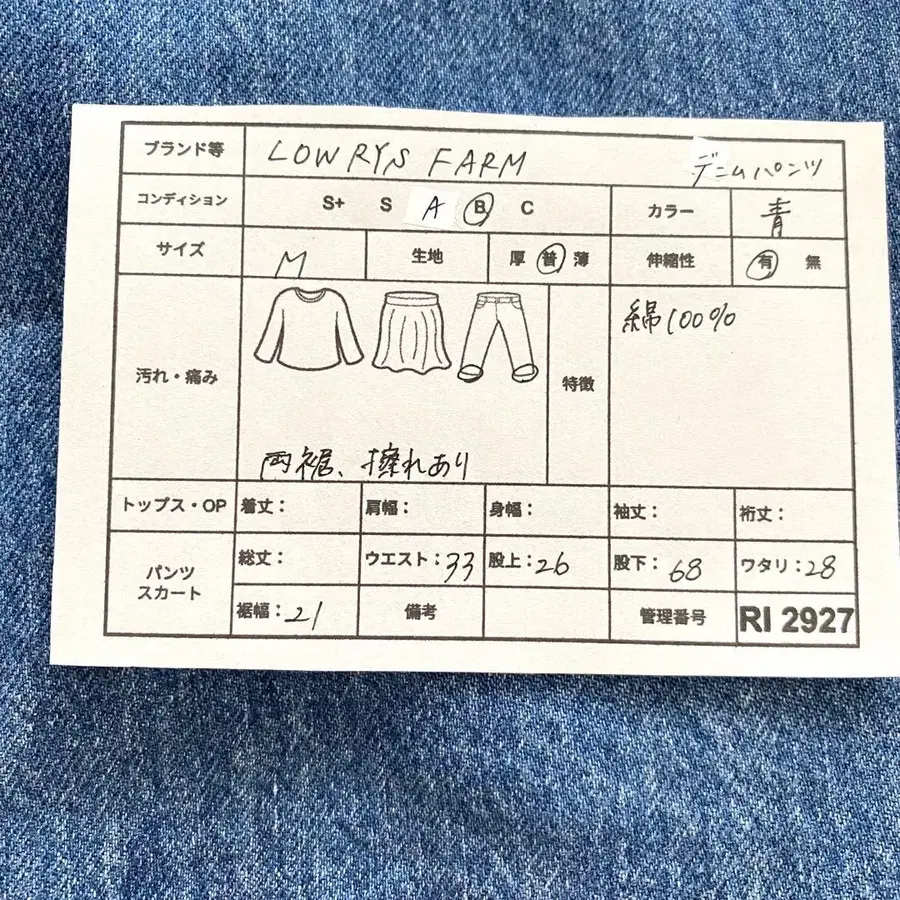 ブランド等 LOWRYS FARM デニムパンツ
コンディション S+ S A B C カラー 青
サイズ M 生地 厚 普 薄 伸縮性 有 無
汚れ・痛み 両裾、擦れあり 特徴 綿100%
トップス・OP 着丈： 肩幅： 身幅： 袖丈： 裄丈：
パンツ スカート 総丈： ウエスト：33 股上：26 股下：68 ワタリ：28
裾幅：21 備考 管理番号 RI 2927